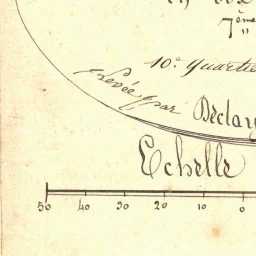 7ème
10e quartie
Levée par Declar
Echelle
50 40 30 20 10 0